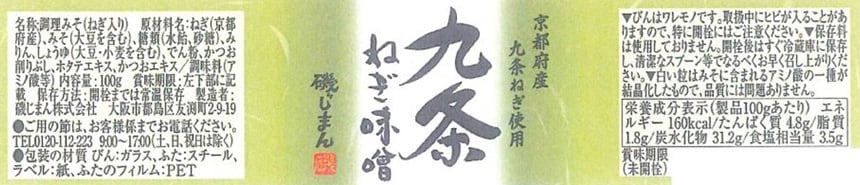 名称:調理みそ(ねぎ入り) 原材料名:ねぎ(京都
府産)、みそ(大豆を含む)、糖類(水飴、砂糖)、み
りん、しょうゆ(大豆・小麦を含む)、でん粉、かつお
削りぶし、ホタテエキス、かつおエキス／調味料(ア
ミノ酸等) 内容量:100g 賞味期限:左下部に記
載 保存方法:開栓までは常温保存 製造者:
磯じまん株式会社 大阪市都島区友渕町2-9-19
●ご用の節は、お客様係までお電話ください。
TEL0120-112-223 9:00～17:00(土、日、祝日は除く)
●包装の材質 びん:ガラス、ふた:スチール、
ラベル:紙、ふたのフィルム:PET
京都府産
九条ねぎ使用
九条
ねぎ味噌
磯じまん
▼びんはワレモノです。取扱中にヒビが入ることがあ
りますので、特に開栓にはご注意ください。▼保存料
は使用しておりません。開栓後はすぐ冷蔵庫に保存
し、清潔なスプーン等でなるべくお早く召し上がりくだ
さい。▼白い粒はみそに含まれるアミノ酸の一種が
結晶化したもので、品質には問題ありません。
栄養成分表示(製品100gあたり) エネ
ルギー 160kcal/たんぱく質 4.8g/脂質
1.8g/炭水化物 31.2g/食塩相当量 3.5g
賞味期限
(未開栓)